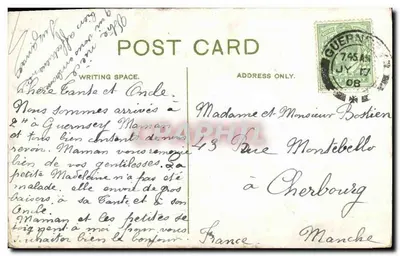 POST CARD
WRITING SPACE.
ADDRESS ONLY.
GUERNSEY
7.45 AM
JY 17
08
Chère Tante et Oncle.
Nous sommes arrivés à
à Guernsey Maman
et très bien content de
revoir. Maman vous remercie
bien de vos gentilesses. La
petite Madeleine n'a pas été
malade. elle envoie de gros
baisers à sa Tante et à son
Oncle.
Maman et les petites se
joignent à moi pour vous
souhaiter bien le bonjour.
Votre nièce
qui vous aime
bien affectueusement
Suzanne
Madame et Monsieur Bostien
43 Rue Montebello
à Cherbourg
France. Manche